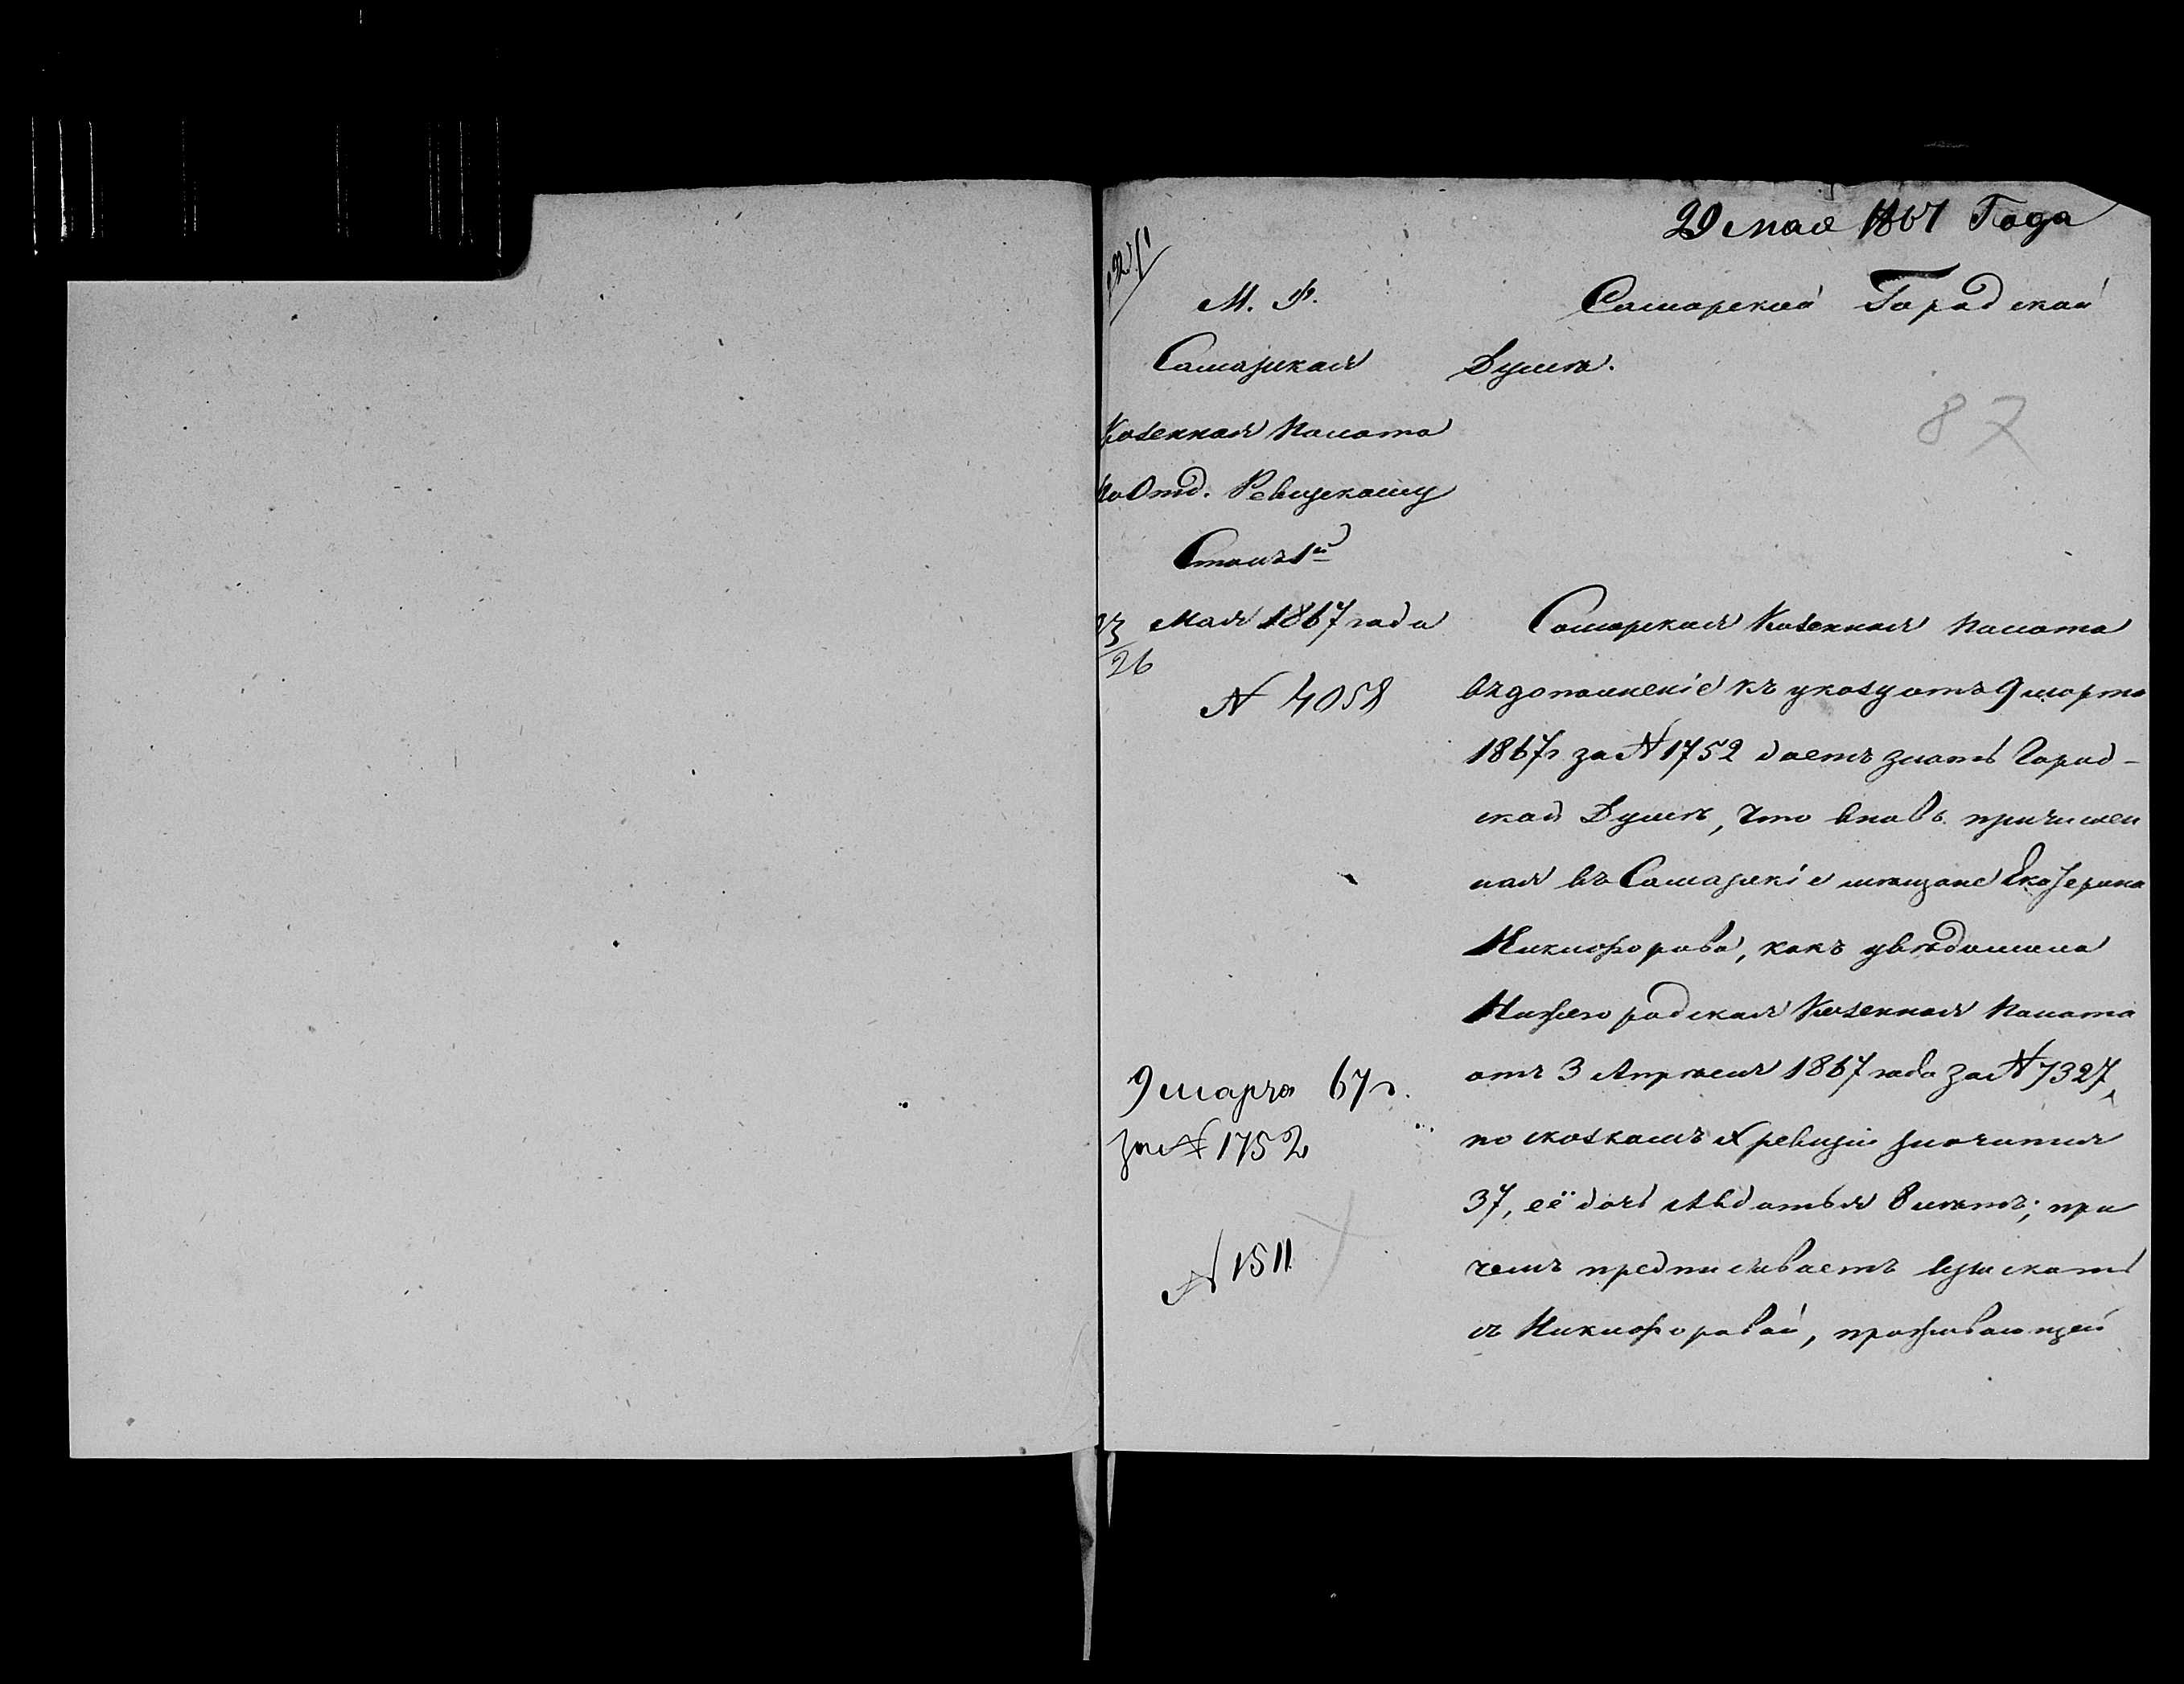 29 мая 1867 Года
М. Ф.
Самарская
Казенная Палата
По Отд. Ревизскому
Столъ 1й
23 Мая 1867 года
26
N 4058
9 марта 67 г.
за N 1752
N 1511
Самарской Городской
Думѣ.
87
Самарская Казенная Палата
въ дополненіе къ указу отъ 9 марта
1867 г за N 1752 даетъ знать Город-
ской Думѣ, что вновь причислен
ная въ Самарскіе мѣщане Екатерина
Никифорова, какъ увѣдомила
Нижегородская Казенная Палата
отъ 3 Апрѣля 1867 года за N 7327,
по сказкамъ X ревизіи значится
37, её дочь Авдотья 8 лѣтъ; при
чемъ предписываетъ взыскать
съ Никифоровой, проживающей